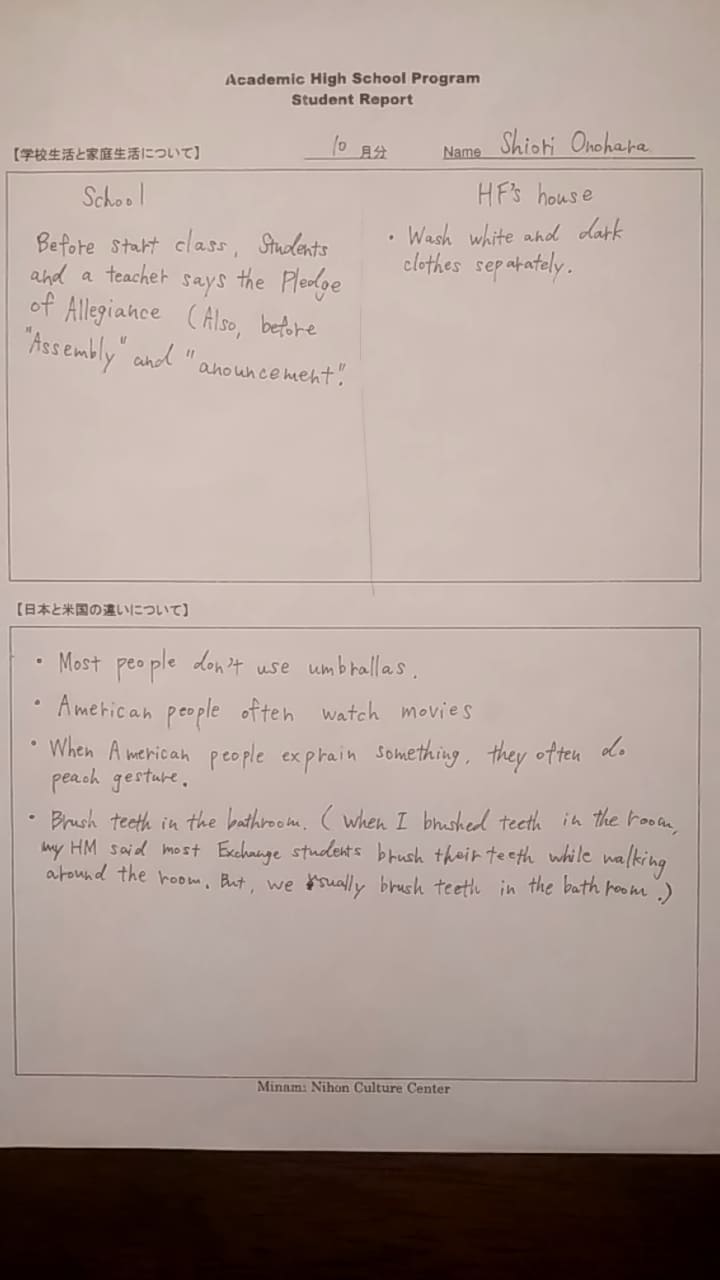 Academic High School Program
Student Report
【学校生活と家庭生活について】 10 月分 Name Shiori Onohara
School
Before start class, Students
and a teacher says the Pledge
of Allegiance (Also, before
"Assembly" and "anouncement".
HF's house
• Wash white and dark
clothes separately.
【日本と米国の違いについて】
• Most people don't use umbrallas.
• American people often watch movies
• When American people exprain something, they often do
peach gesture.
• Brush teeth in the bathroom. (When I brushed teeth in the room,
my HM said most Exchange students brush their teeth while walking
around the room. But, we usually brush teeth in the bathroom.)
Minami Nihon Culture Center